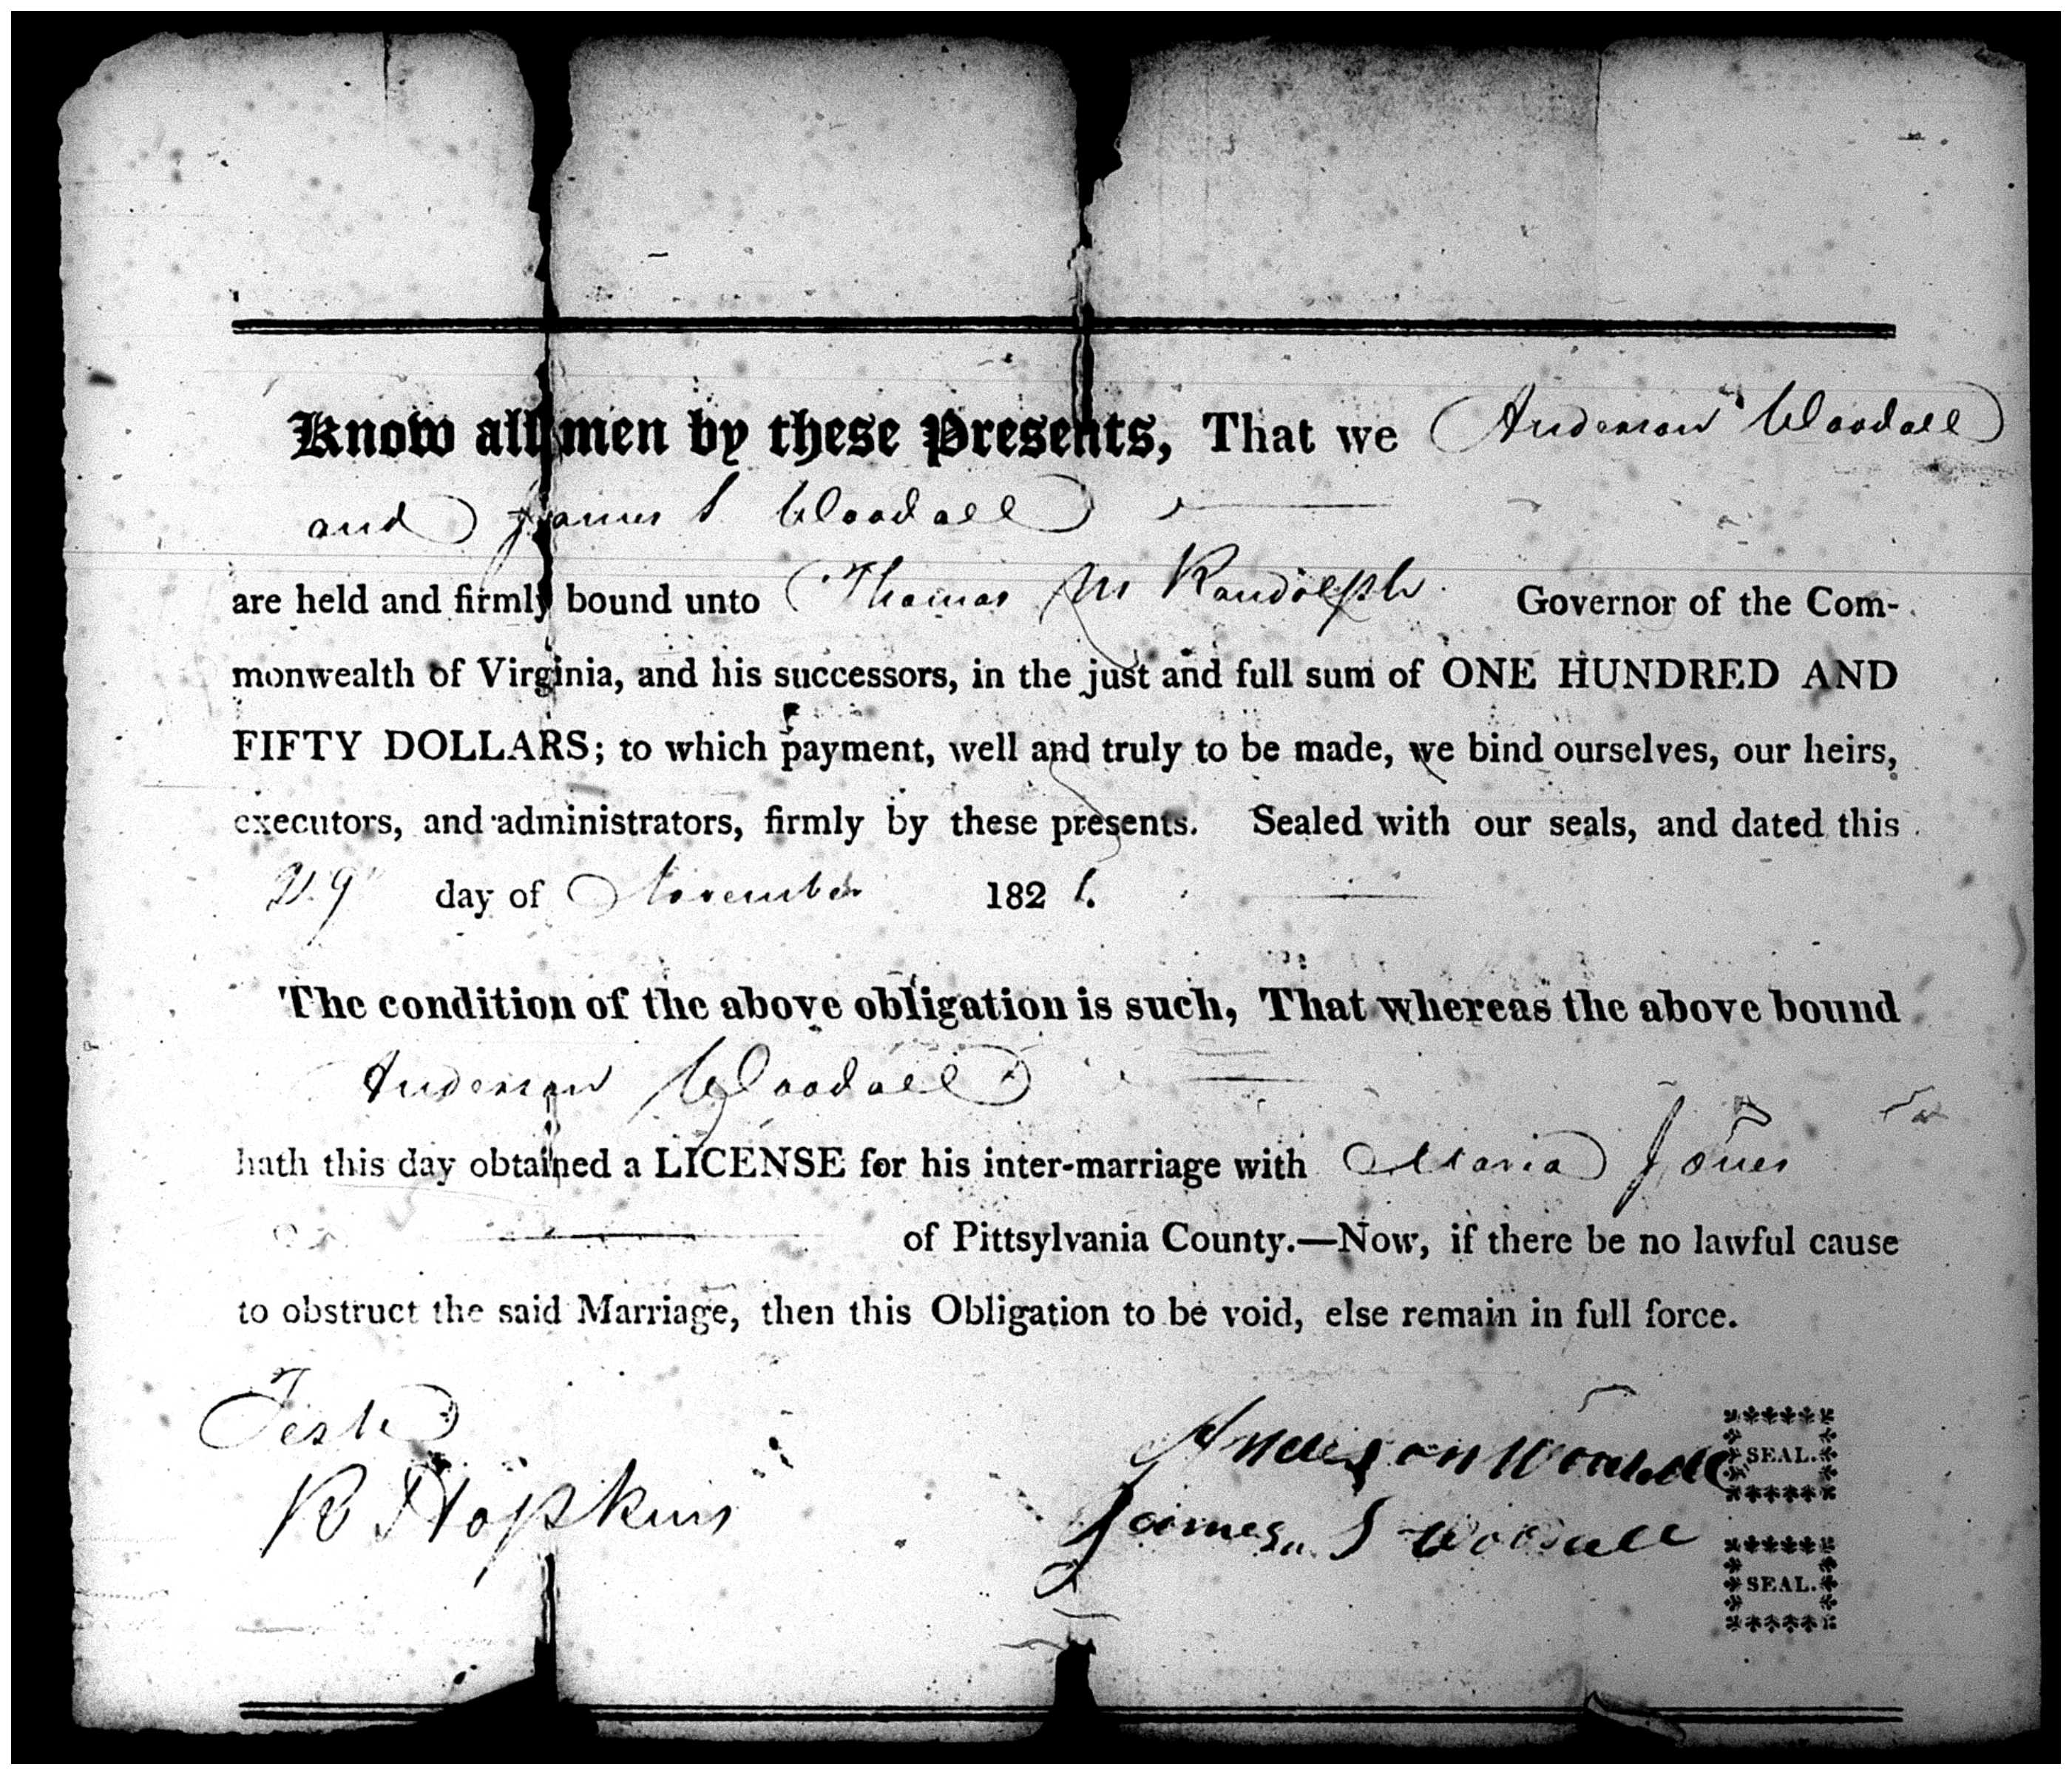 Know all men by these Presents, That we Anderson Woodall
and James S. Woodall
are held and firmly bound unto Thomas M Randolph Governor of the Com-
monwealth of Virginia, and his successors, in the just and full sum of ONE HUNDRED AND
FIFTY DOLLARS; to which payment, well and truly to be made, we bind ourselves, our heirs,
executors, and administrators, firmly by these presents. Sealed with our seals, and dated this
29" day of November 1821.
The condition of the above obligation is such, That whereas the above bound
Anderson Woodall
hath this day obtained a LICENSE for his inter-marriage with Maria Jones
of Pittsylvania County.—Now, if there be no lawful cause
to obstruct the said Marriage, then this Obligation to be void, else remain in full force.
Teste
Anderson Woodall SEAL.
B Hopkins
James S Woodall SEAL.